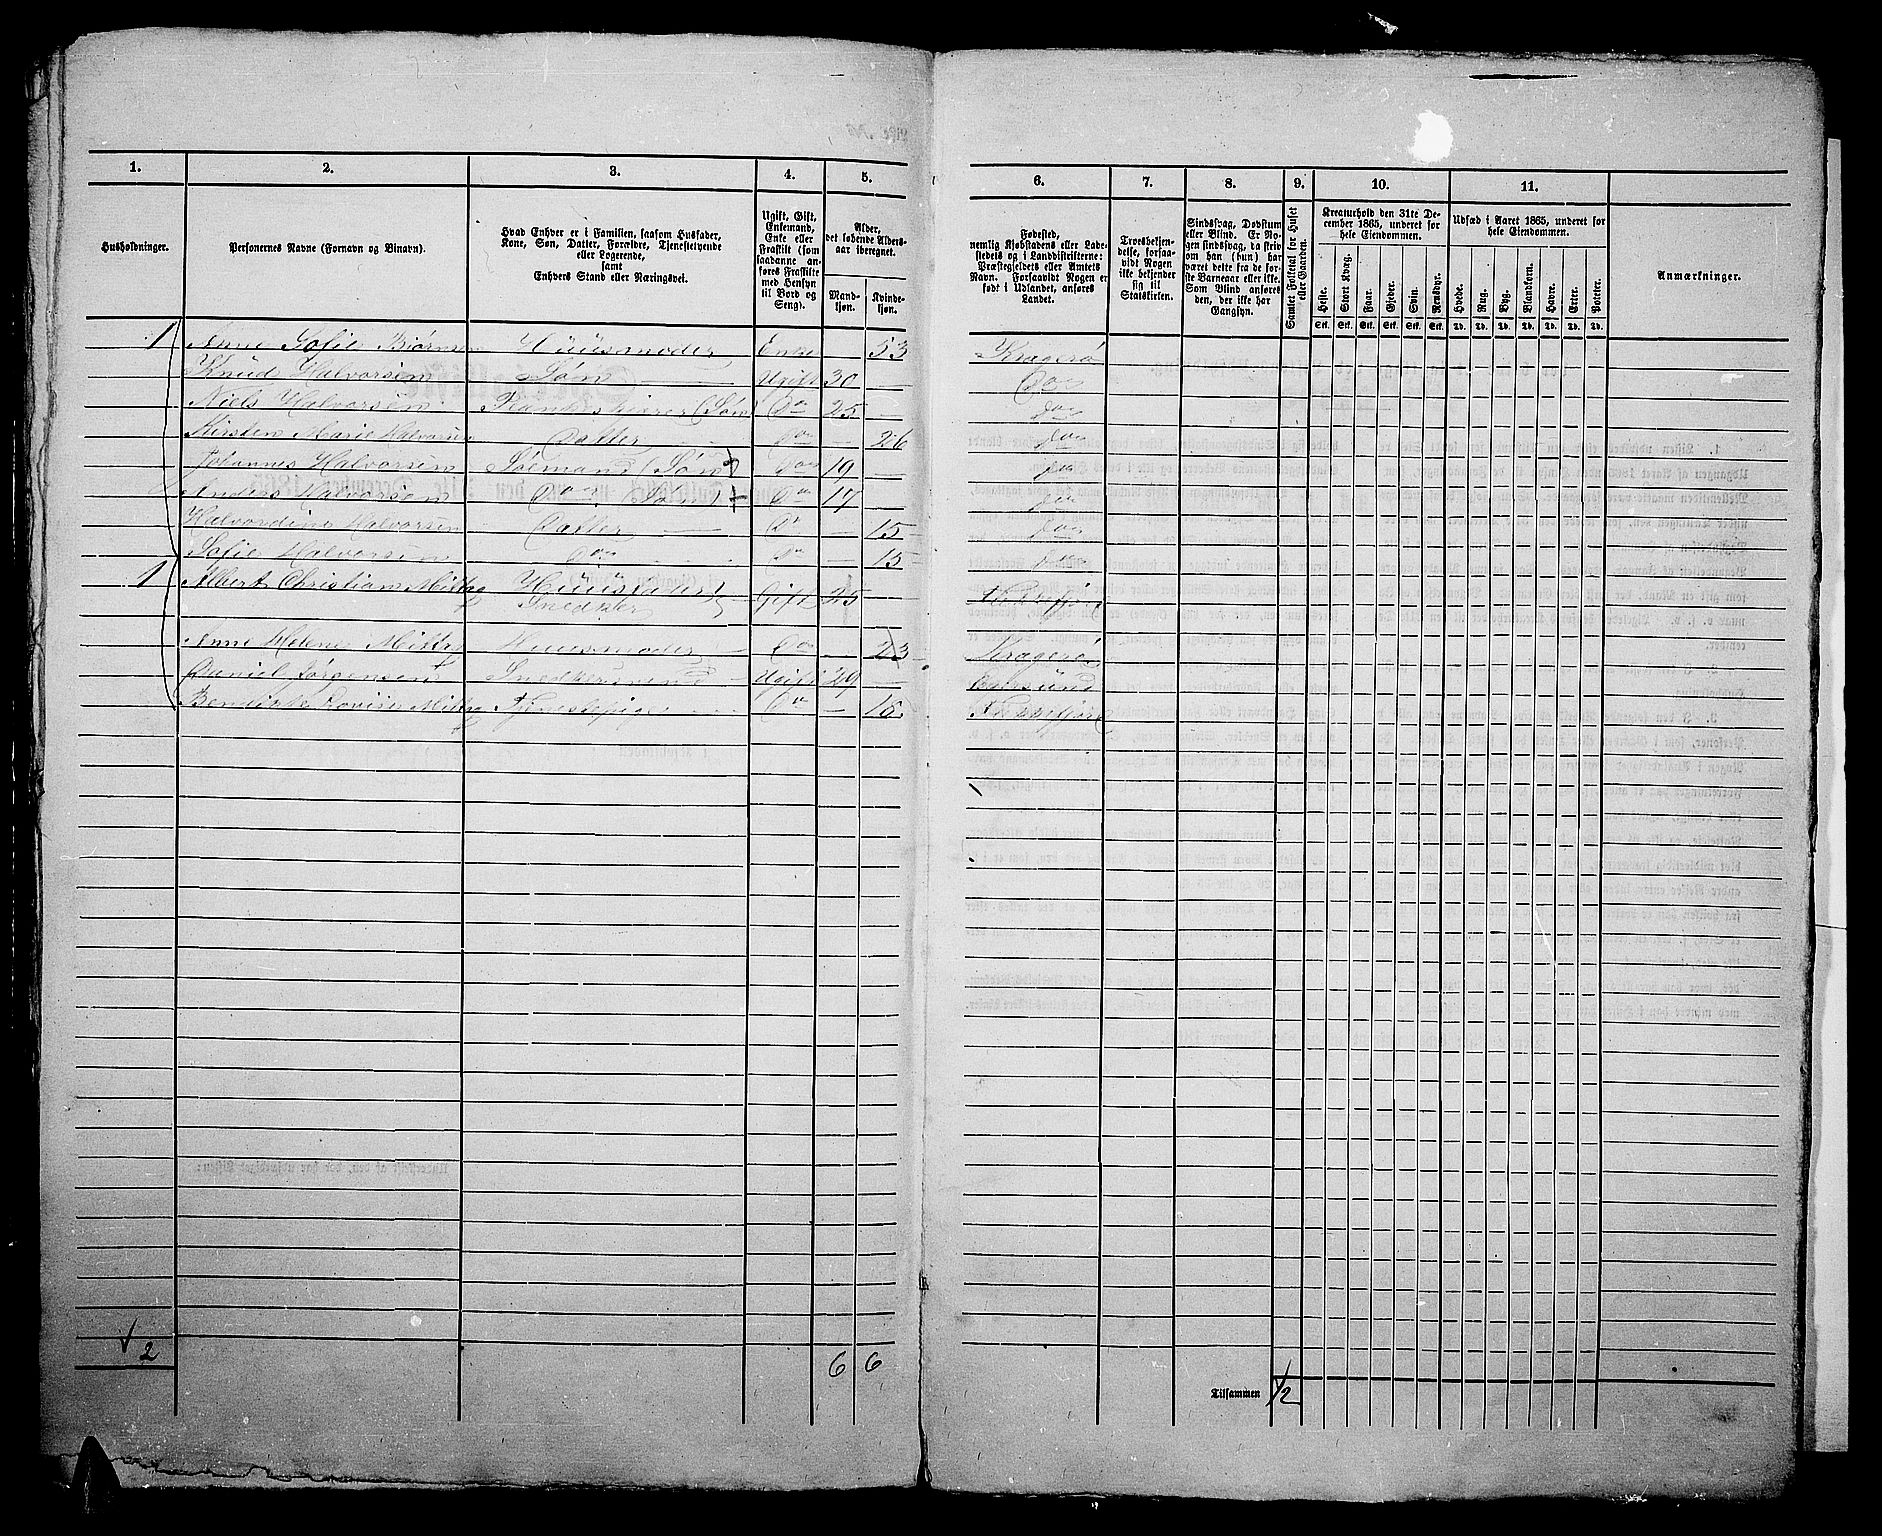 1. 2. 3. 4. 5. 6. 7. 8. 9. 10. 11.
Husholdninger.
Personernes Navne (Fornavn og Binavn).
Hvad Enhver er i Familien, saasom Husfader,
Kone, Søn, Datter, Forældre, Tjenestetyende
eller Logerende,
samt
Enhvers Stand eller Næringsvei.
Ugift, Gift,
Enkemand,
Enke eller
Fraskilt (som
saadanne an-
føres Fraskilte
med Hensyn
til Bord og
Seng).
Alder,
det løbende Alders-
aar iberegnet.
Mand-
kjøn.
Kvinde-
kjøn.
Fødested,
nemlig Kjøbstadens eller Lade-
stedets og i Landdistrikterne:
Præstegjeldets eller Amtets
Navn. Forsaavidt Nogen er
født i Udlandet, anføres
Landet.
Troesbekjen-
delse, forsaa-
vidt Nogen
ikke bekjender
sig til
Statskirken.
Sindssvag, Døvstum
eller Blind. Er No-
gen sindssvag, da skriv
om han (hun) har
været dette fra de før-
ste Barneaar eller ikke.
Som Blind anføres
den, der ikke har
Gangsyn.
Samlet Folketal for Huset
eller Gaarden.
Kreaturhold den 31te De-
cember 1865, underet for
hele Eiendommen.
Heste. Stort Kvæg. Faar. Gjeder. Svin. Rensdyr.
Stk. Stk. Stk. Stk. Stk. Stk.
Udsæd i Aaret 1865, underet for
hele Eiendommen.
Hvede. Rug. Byg. Blandkorn. Havre. Erter. Poteter.
Td. Td. Td. Td. Td. Td. Td.
Anmærkninger.
1 Anne Sofie Bjørnsen Huusmoder Enke — 53 Kragerø
Knud Halvorsen Søn Ugift 30 — Do
Niels Halvorsen (Søn) Do 25 — do
Kirsten Marie Halvorsen Datter Do — 26 do
Johannes Halvorsen Sømand (Søn) Do 19 — do
Anders Halvorsen Do (Søn) Do 17 — do
Halvordine Halvorsen Datter Do — 15 do
Sofie Halvorsen Do Do — 15 do
1 Albert Christian Huusfader Gift 25
Snedker
Anne Helene Huusmoder Do — 23 Kragerø
Daniel Jørgensen Snedkersvend Ugift 29 —
Lovise Tjenestepige Do — 16
2 6 6
Tilsammen 12